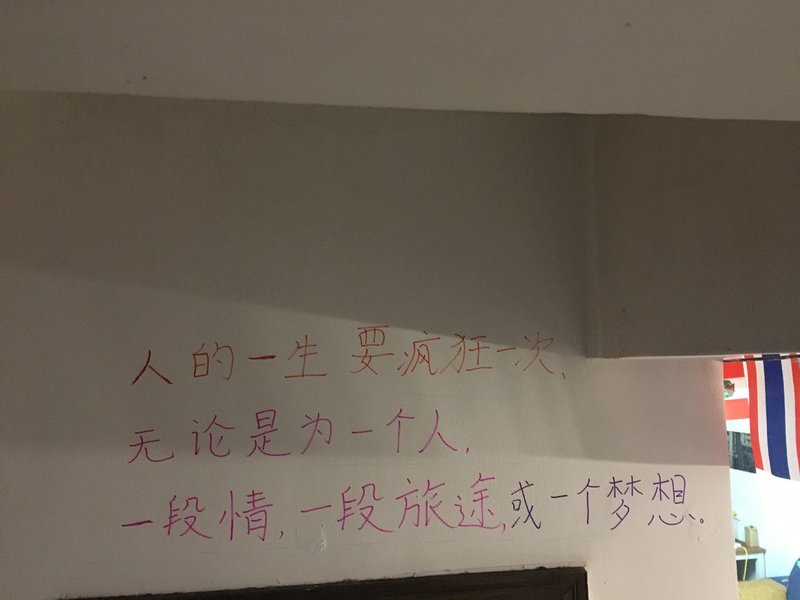 人的一生要疯狂一次,
无论是为一个人,
一段情,一段旅途,或一个梦想。